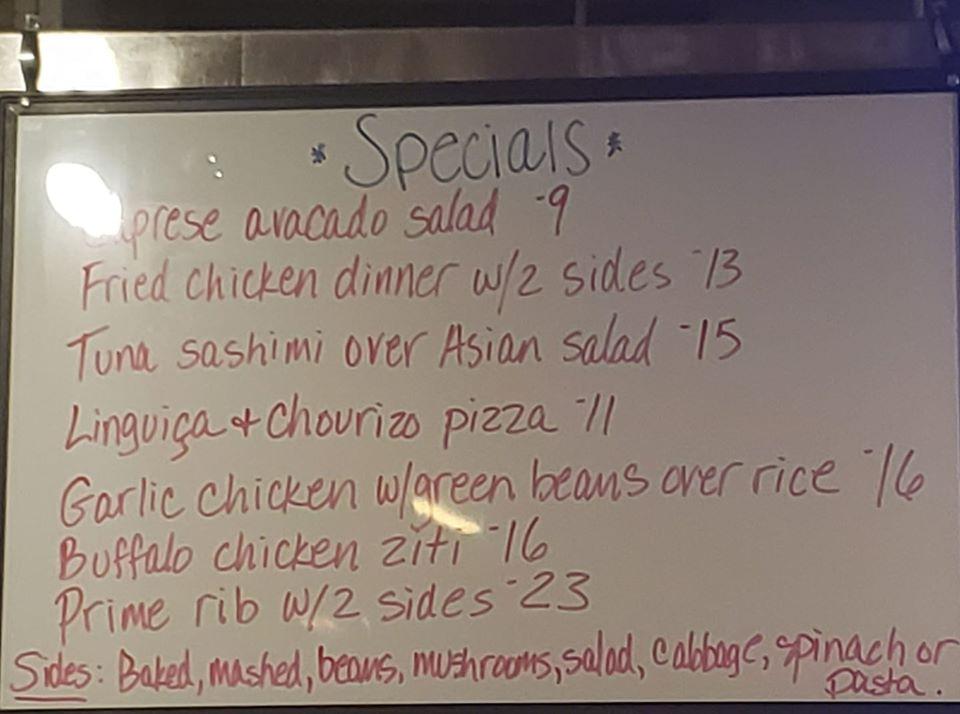 *Specials*
Caprese avacado salad -9
Fried chicken dinner w/2 sides -13
Tuna sashimi over Asian salad -15
Linguiça & Chourizo pizza -11
Garlic chicken w/green beans over rice -16
Buffalo chicken ziti -16
Prime rib w/2 sides -23
Sides: Baked, mashed, beans, mushrooms, salad, cabbage, spinach or
pasta.